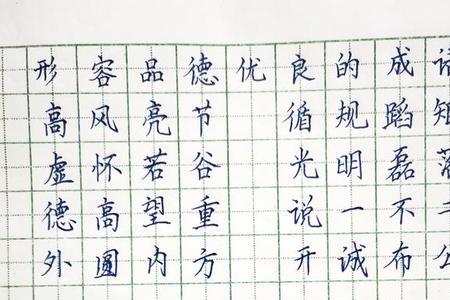 形容品德优良的成语
高风亮节 循规蹈矩
虚怀若谷 光明磊落
德高望重 说一不二
外圆内方 开诚布公